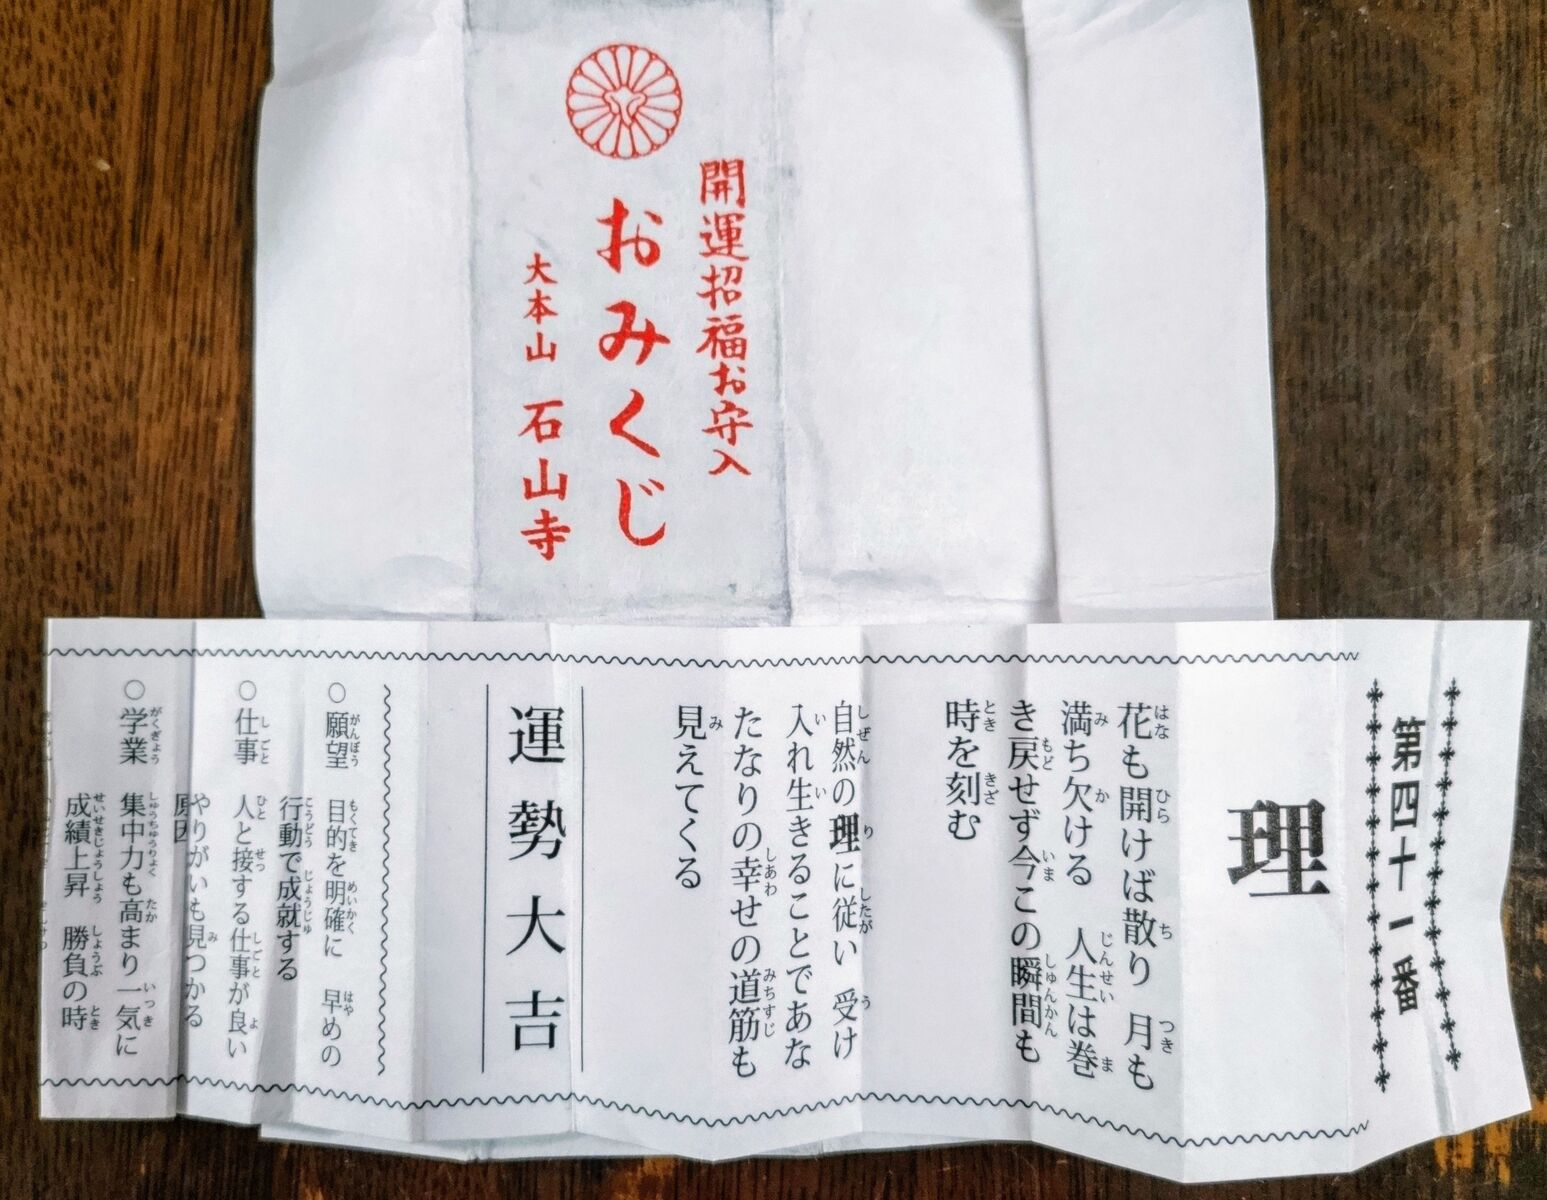 開運招福お守入
おみくじ
大本山 石山寺
第四十一番
理
花も開けば散り 月も
満ち欠ける 人生は巻
き戻せず今この瞬間も
時を刻む
自然の理に従い 受け
入れ生きることであな
たなりの幸せの道筋も
見えてくる
運勢大吉
○願望 目的を明確に 早めの
行動で成就する
○仕事 人と接する仕事が良い
やりがいも見つかる
○学業 集中力も高まり一気に
成績上昇 勝負の時